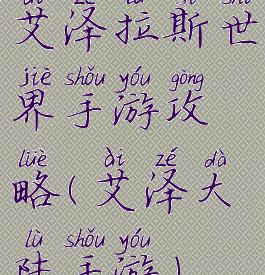 ài zé lā sī shì
艾泽拉斯世
jiè shǒu yóu gōng
界手游攻
lüè ài zé dà
略(艾泽大
lù shǒu yóu
陆手游)